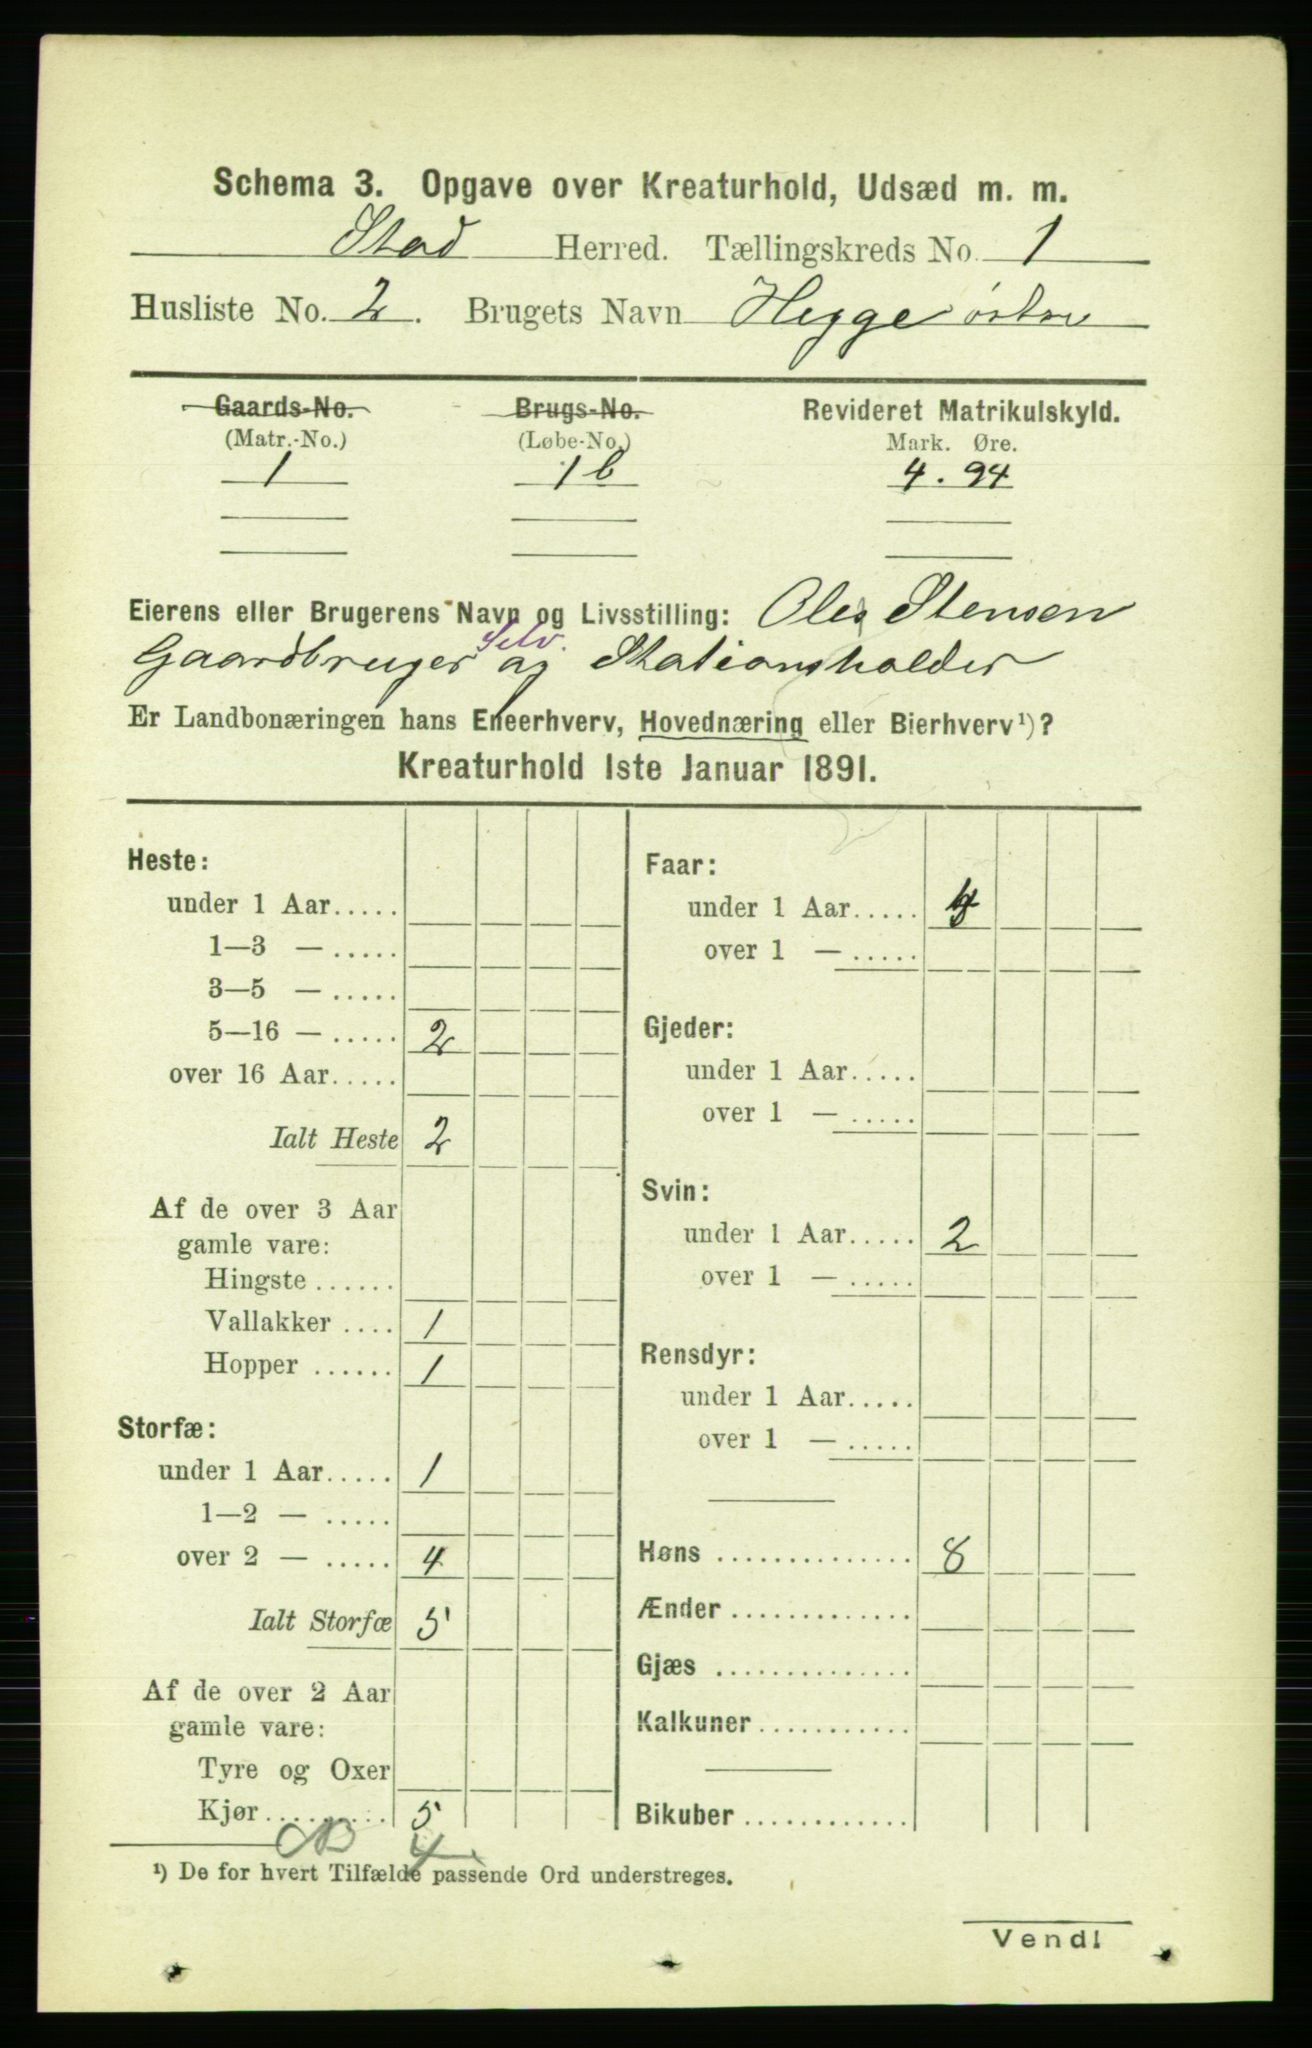 Schema 3. Opgave over Kreaturhold, Udsæd m. m.
Stod Herred. Tællingskreds No. 1
Husliste No. 2. Brugets Navn Hegge östre
Gaards-No. Brugs-No. Revideret Matrikulskyld.
(Matr.-No.) (Løbe-No.) Mark. Øre.
1 1 b 4. 94
Eierens eller Brugerens Navn og Livsstilling: Ole Stensen
Selv.
Gaardbruger og Stationsholder
Er Landbonæringen hans Eneerhverv, Hovednæring eller Bierhverv¹)?
Kreaturhold 1ste Januar 1891.
Heste:
under 1 Aar.....
1—3 — .....
3—5 — .....
5—16 — ..... 2
over 16 Aar.....
Ialt Heste 2
Af de over 3 Aar
gamle vare:
Hingste ......
Vallakker .... 1
Hopper ...... 1
Storfæ:
under 1 Aar..... 1
1—2 — .....
over 2 — ..... 4
Ialt Storfæ 5
Af de over 2 Aar
gamle vare:
Tyre og Oxer
Kjør.......... 5
4
Faar:
under 1 Aar.....
over 1 — .....
Gjeder:
under 1 Aar.....
over 1 — .....
Svin:
under 1 Aar..... 2
over 1 — .....
Rensdyr:
under 1 Aar.....
over 1 — .....
Høns .............. 8
Ænder .............
Gjæs ..............
Kalkuner...........
Bikuber ............
¹) De for hvert Tilfælde passende Ord understreges.
Vend!